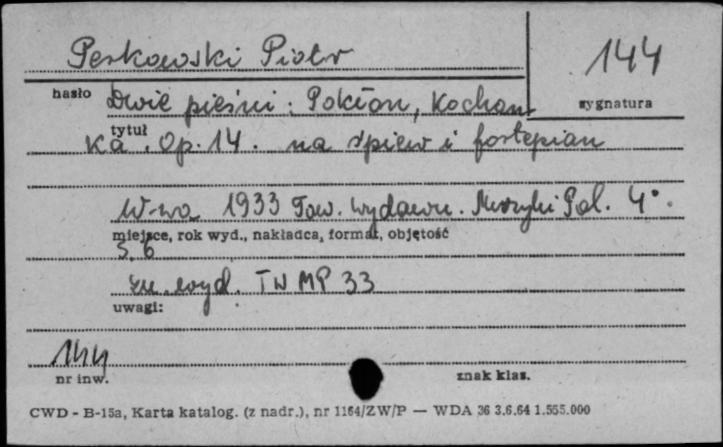 Perkowski Piotr
144
hasło
sygnatura
Dwie pieśni: Pokłon, Kochan
tytuł
ka. Op. 14. na śpiew i fortepian
W-wa 1933 Tow. Wydawn. Muzyki Pol. 4°.
miejsce, rok wyd., nakładca, format, objętość
S. 6
zn. wyd. TWMP 33
uwagi:
144
nr inw.
znak klas.
CWD - B-15a, Karta katalog. (z nadr.), nr 1164/ZW/P — WDA 36 3.6.64 1.555.000